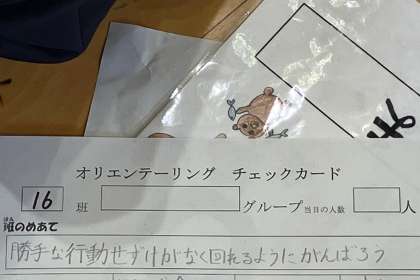 オリエンテーリング チェックカード
16 班 グループ 当日の人数 人
はん
班のめあて
勝手な行動せずけがなく回れるようにがんばろう